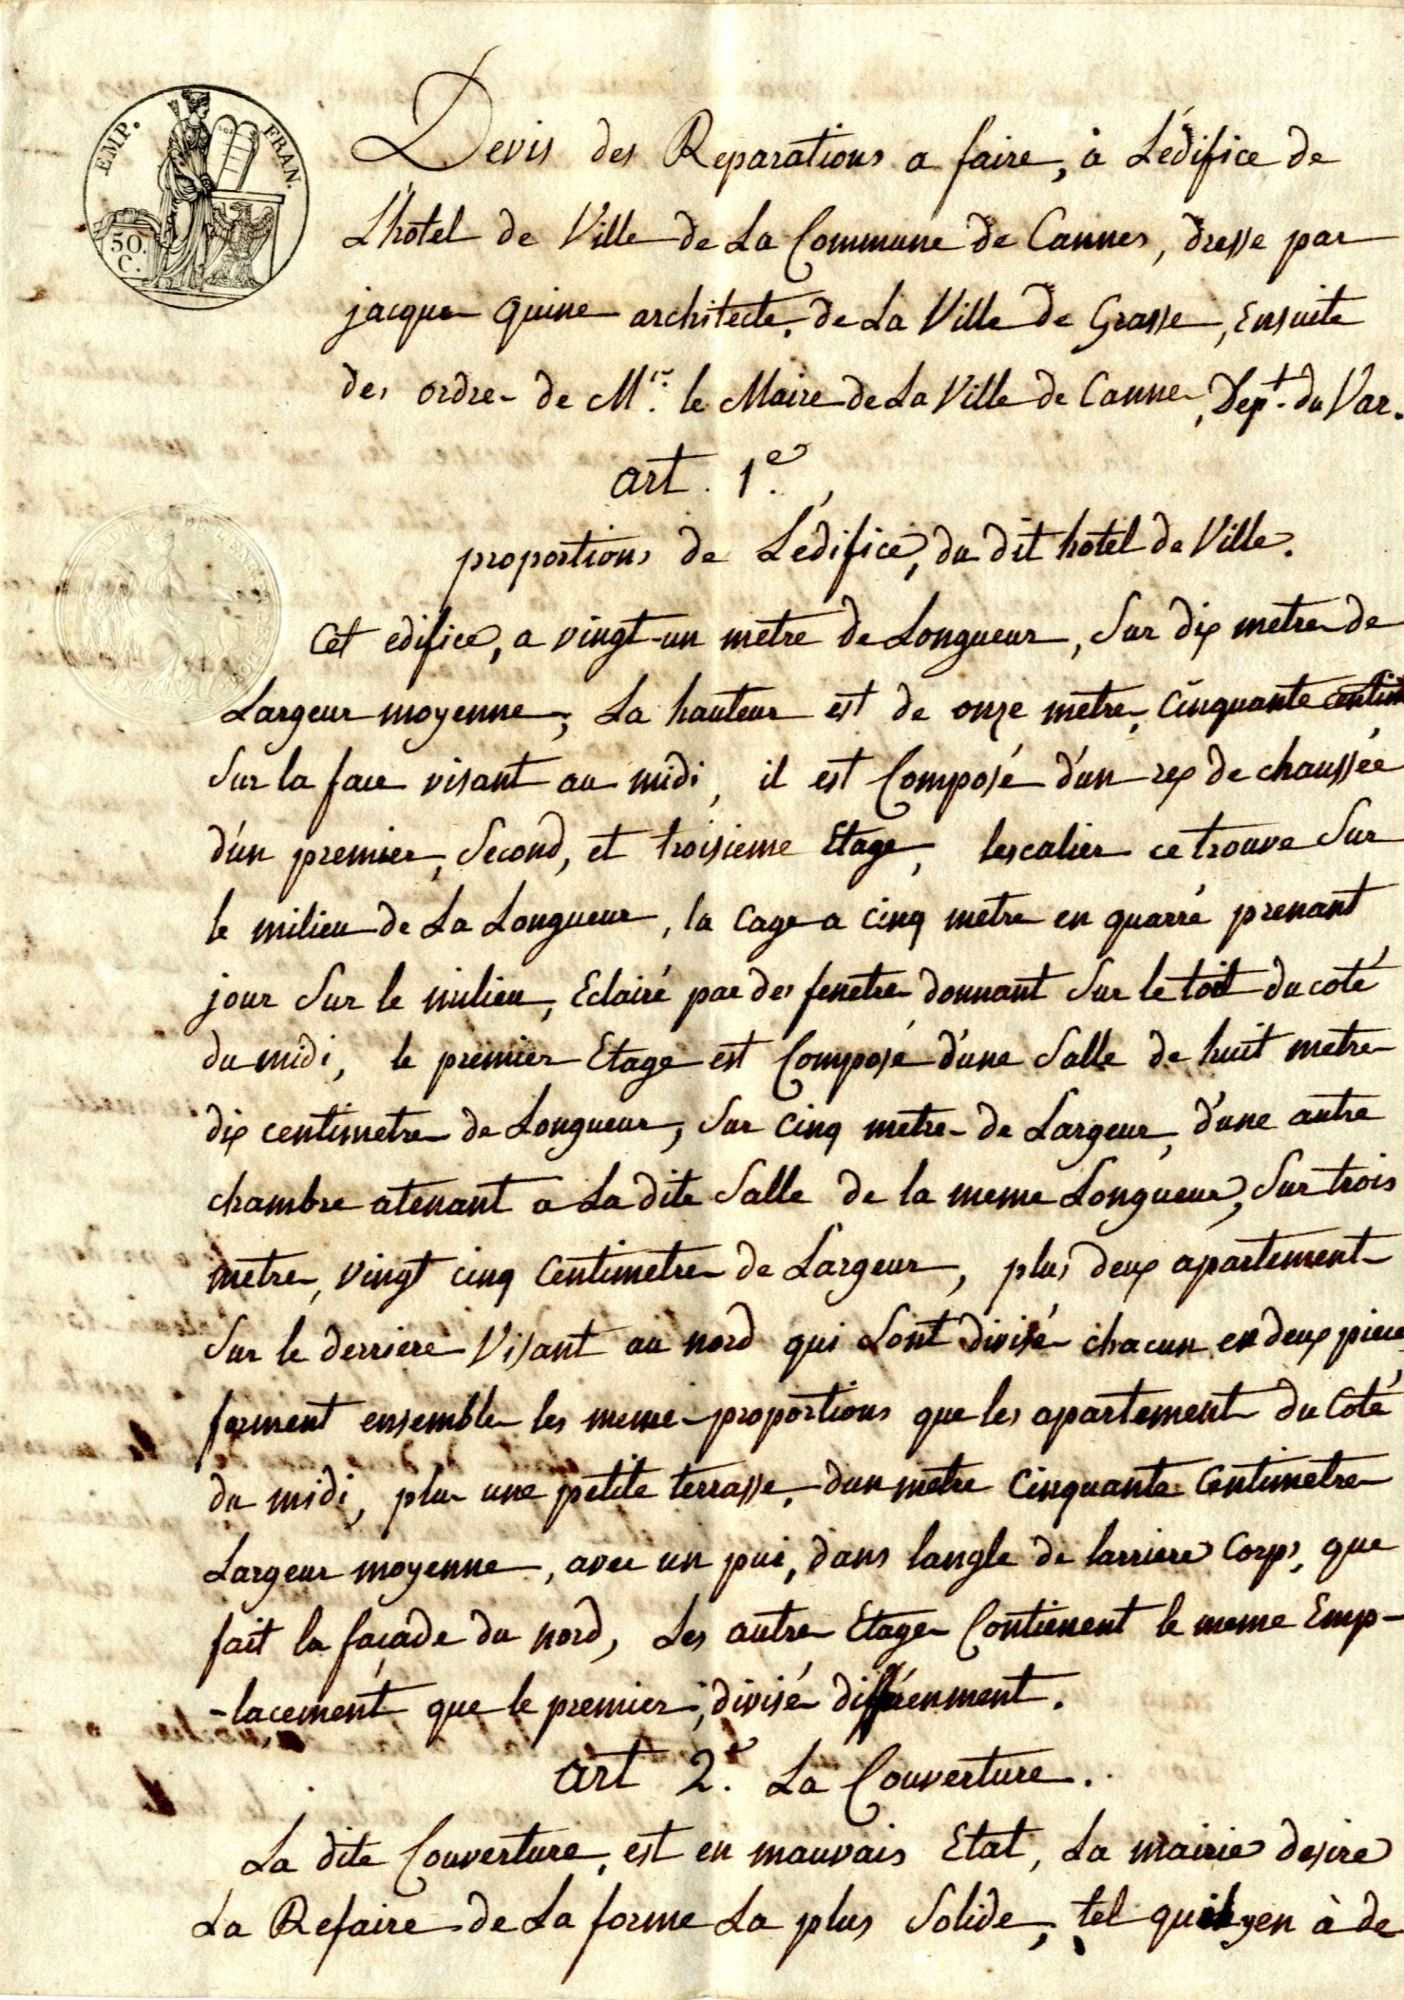 EMP. FRAN.
50.
C.
Devis des Reparations a faire, à L'édifice de
L'hôtel de Ville de La Commune de Cannes, dressé par
jacques Quine architecte, de La Ville de Grasse, Ensuite
des ordres de Mr. le Maire de La Ville de Cannes, Dept. du Var.
art. 1e.
proportions de L'édifice, du dit hotel de Ville.
Cet edifice, a vingt-un metre de Longueur, Sur dix metres de
Largeur moyenne, La hauteur est de onze metres, Cinquante
Sur la face visant au midi, il est Composé d'un rex de chaussée
d'un premier, Second, et troisieme Etage, lescalier ce trouve Sur
le milieu de La Longueur, la cage a cinq metres en quarré prenant
jour Sur le milieu, Eclairé par des fenetres donnant Sur le toit du coté
du midi, le premier Etage est Composé d'une Salle de huit metres
dix centimetres de Longueur, Sur cinq metres de Largeur, d'une autre
chambre atenant a La dite Salle de la meme Longueur, Sur trois
metres, vingt cinq Centimetres de Largeur, plus deux apartements
Sur le derriere Visant au nord qui Sont divisés chacun en deux pieces
forment ensembles les memes proportions que les apartements du Coté
du midi, plus une petite terrasse, d'un metre Cinquante Centimetres
Largeur moyenne, avec un pui, dans langle de larriere Corps, que
fait la façade du nord, Les autres Etages Contienent le meme Emp-
-lacement que le premier, divisés différenment.
art 2e. La Couverture.
La dite Couverture, est en mauvais Etat, La mairie desire
La Refaire de La forme La plus Solide, tel quil yen à de